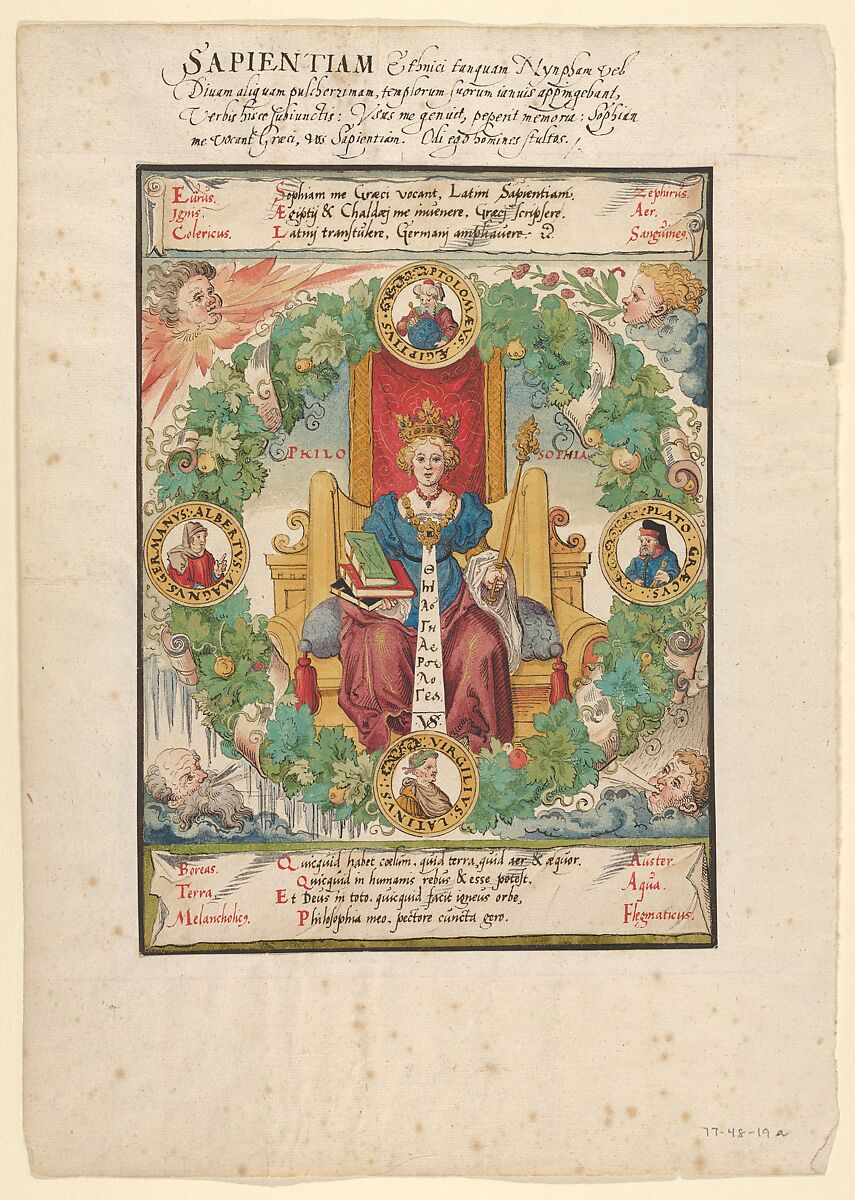 SAPIENTIAM Ethnici tanquam Nynpham vel
Divam aliquam pulcherrimam, templorum suorum ianuis appingebant,
Verbis hisce subiunctis: Vsus me genuit, peperit memoria: Sophian
me vocant Græci, vos Sapientiam. Odi ego homines stultos.
Eurus.
Ignis.
Colericus.
Sophiam me Græci vocant, Latini Sapientiam,
Ægiptij & Chaldæj me invenere, Græcj scripsere.
Latinj transtulere, Germanj ampliavere.
Zephirus.
Aer.
Sanguine9.
PTOLOMÆVS: ÆGIPTIVS:
PHILO SOPHIA
ALBERTVS MAGNVS GERMANVS:
PLATO GRÆCVS:
Θ
ΛΟ
ΓΗ
ΛΟ
ΓΕΑ
VIRGILIVS: LATINVS:
Boreas.
Terra.
Melancholic9.
Quicquid habet coelum, quid terra, quid aer & æquor.
Quicquid in humanis rebus & esse potest.
Et Deus in toto quicquid facit igneus orbe,
Philosophia meo, pectore cuncta gero.
Auster.
Aqua.
Flegmaticus.
77-48-19a